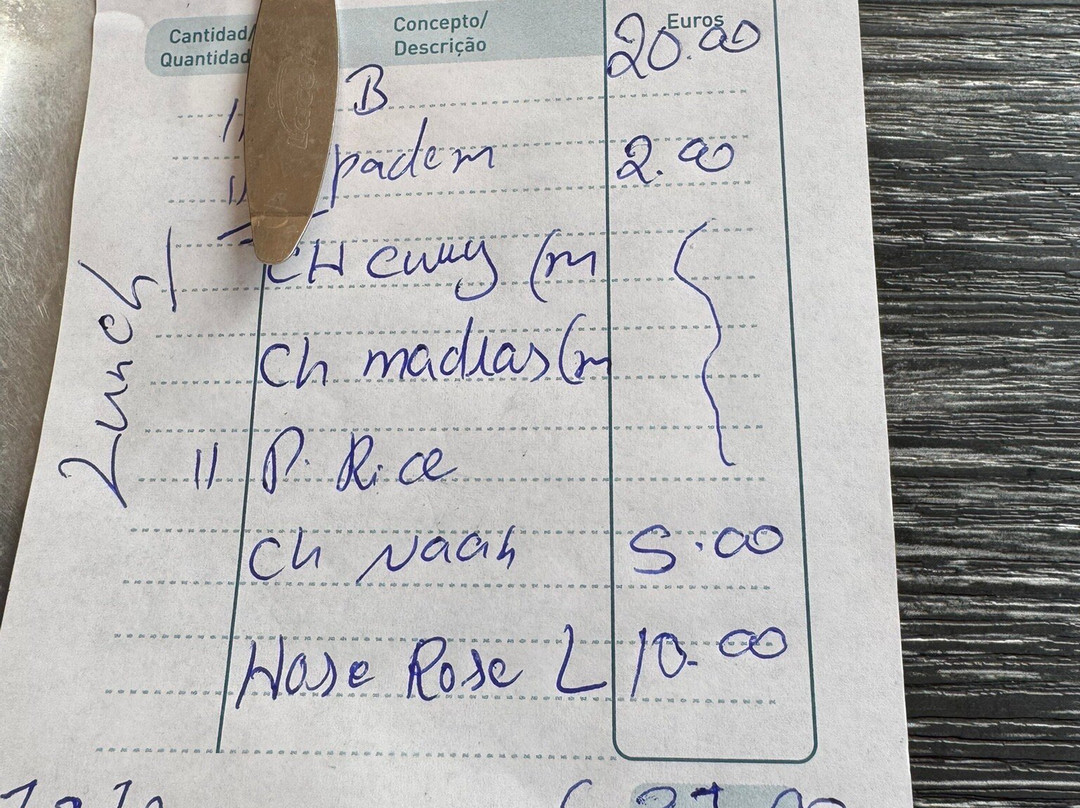 Cantidad/ Concepto/ Euros
Quantidad Descrição
B 20.00
padem 2.00
CH Curry (m
Ch madras (m
Lunch
11 P. Rice
Ch Naan 5.00
Hose Rose L 10.00
37.00